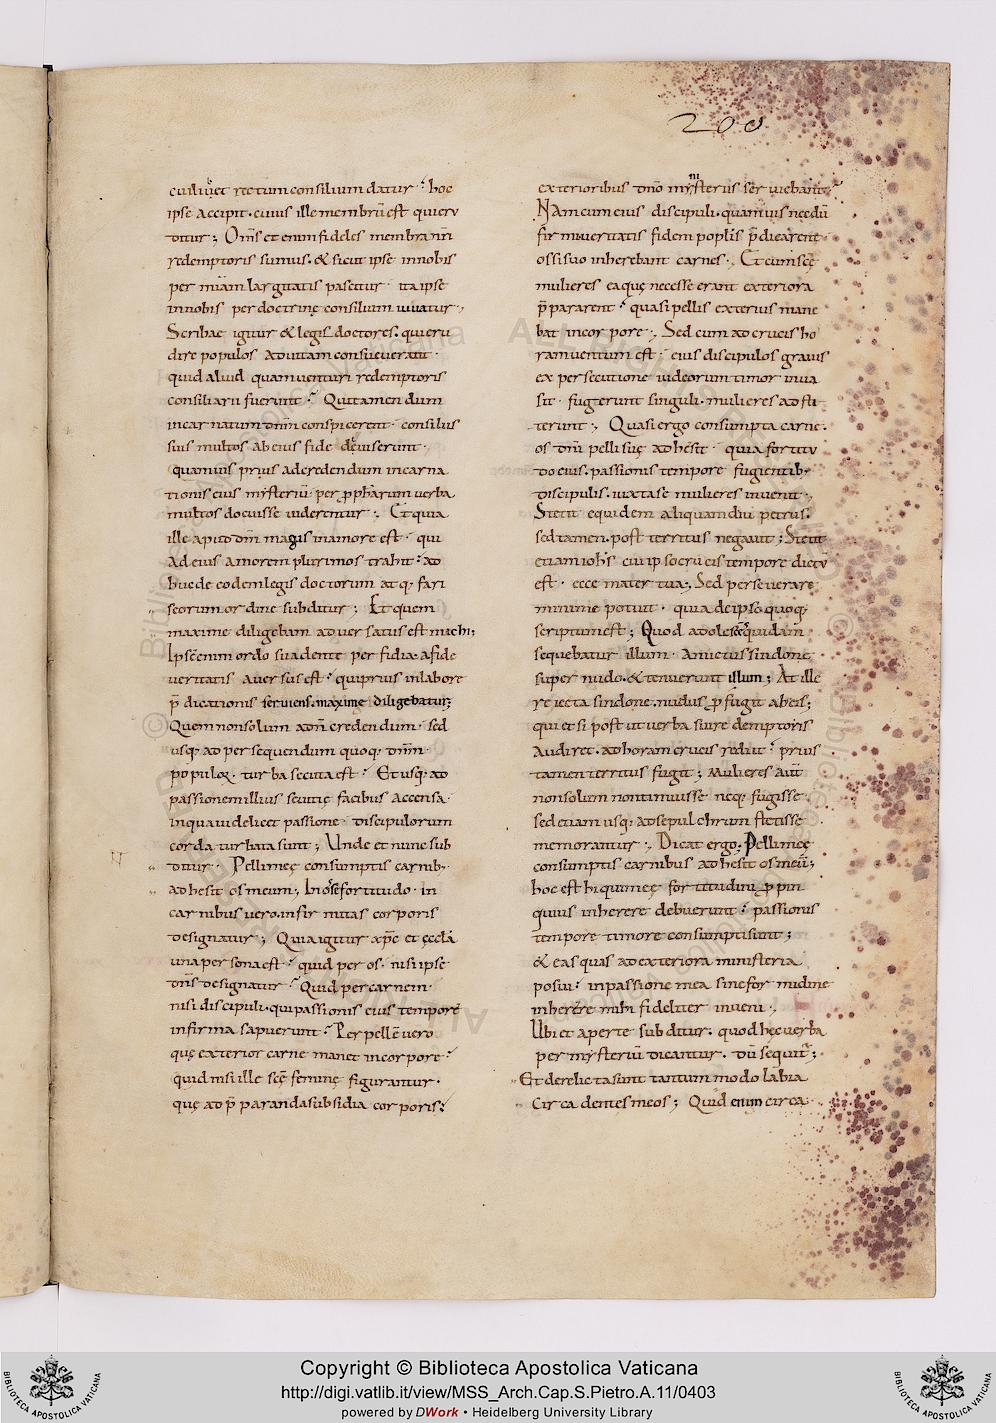 200
cuiliꝫet rectum consilium datur · hoc
ipse accipit · cuius ille membrū est qui eru
ditur ; Om̄s et enim fideles membra nr̄i
redemptoris sumus · & sicut ipse in nobis
per miām largitatis pascitur · ita ipse
in nobis per doctrinę consilium iuvatur ·,
Scribae igitur & legis doctores · qui eru
dire populos ad vitam consueverant ·
quid aliud quam venturi redemptoris
consiliarii fuerunt · Qui tamen dum
incarnatum dn̄m conspicerent · consiliis
suis multos ab eius fide diviserunt ·
quamvis prius ad credendum incarna
tionis eius mysteriū · per ꝓpharum verba
multos docuisse viderentur ·, Et quia
ille apud dm̄ magis in amore est · qui
ad eius amorem plurimos trahit : ad
huc de eodem legis doctorum atq; fari
seorum ordine subditur ; Et quem
maxime diligebam adversatus est michi ;
Ipse enim ordo suadente perfidia · a fide
veritatis aversus est · qui prius in labore
p̄dicationis serviens · maxime diligebatur ;
Quem non solum ad n̄ credendum · sed
usq; ad persequendum quoq; dn̄m ·
populoꝝ · turba secuta est · Et usq; ad
passionem illius sevitię facibus accensa ·
in qua videlicet passione · discipulorum
corda turbata sunt ; Unde et nunc sub
ditur · Pelli meę consumptis carnib;
adhesit os meum ; In osse fortitudo · in
carnibus vero infirmitas corporis
designatur ; Quia igitur xp̄c et ęcclā
una persona est · quid per os · nisi ipse
dn̄s designatur · Quid per carnem ·
nisi discipuli · qui passionis eius tempore
infirma sapuerunt · Per pellē vero
quę exterior carne manet in corpore ·
quid nisi ille scę feminę figurantur ·
quę ad p̄paranda subsidia corporis ·
exterioribus dn̄o mynisteriis serviebant ·
Nam cum eius discipuli · quamvis necdū
firmi veritatis fidem poplis p̄dicarent ·
ossi suo inherebant carnes ·, Et cum scę
mulieres eaque necesse erant exteriora
p̄pararent · quasi pellis exterius mane
bat in corpore ·, Sed cum ad crucis ho
ram ventum est · eius discipulos gravis
ex persecutione iudeorum timor inva
sit · fugerunt singuli · mulieres adsti
terunt ·, Quasi ergo consumpta carne ·
os dn̄i pelli suę adhesit · quia fortitu
do eius · passionis tempore fugientib;
discipulis · iuxta se mulieres invenit ·,
Stetit equidem aliquamdiu petrus ·
sed tamen · post territus negavit ; Stetit
etiam iohs cui ipso crucis tempore dictū
est · ecce mater tua ·, Sed perseverare
minime potuit · quia de ipso quoq;
scriptum est ; Quod adolescens quidam
sequebatur illum · amictus sindone
super nudo · & tenuerunt illum ; At ille
reiecta sindone · nudus ꝓfugit ab eis ;
qui etsi post ut verba sui redemptoris
audiret · ad horam crucis rediit · prius
tamen territus fugit ; Mulieres autē
non solum non timuisse neq; fugisse ·
sed etiam usq; ad sepulchrum stetisse
memorantur ·, Dicat ergo · Pelli meę
consumptis carnibus adhesit os meū ;
hoc est hi qui meę fortitudini ꝓpin
quius inherere debuerunt · passionis
tempore timore consumpti sunt ;
& eas quas ad exteriora ministeria
posui · in passione mea sine formidine
inherere mihi fideliter inveni ·,
Ubi et aperte subditur · quod hęc verba
per mysteriū dicantur · dū sequit̄ ;
Et derelicta sunt tantummodo labia
circa dentes meos ; Quid enim circa
Copyright © Biblioteca Apostolica Vaticana
http://digi.vatlib.it/view/MSS_Arch.Cap.S.Pietro.A.11/0403
powered by DWork • Heidelberg University Library